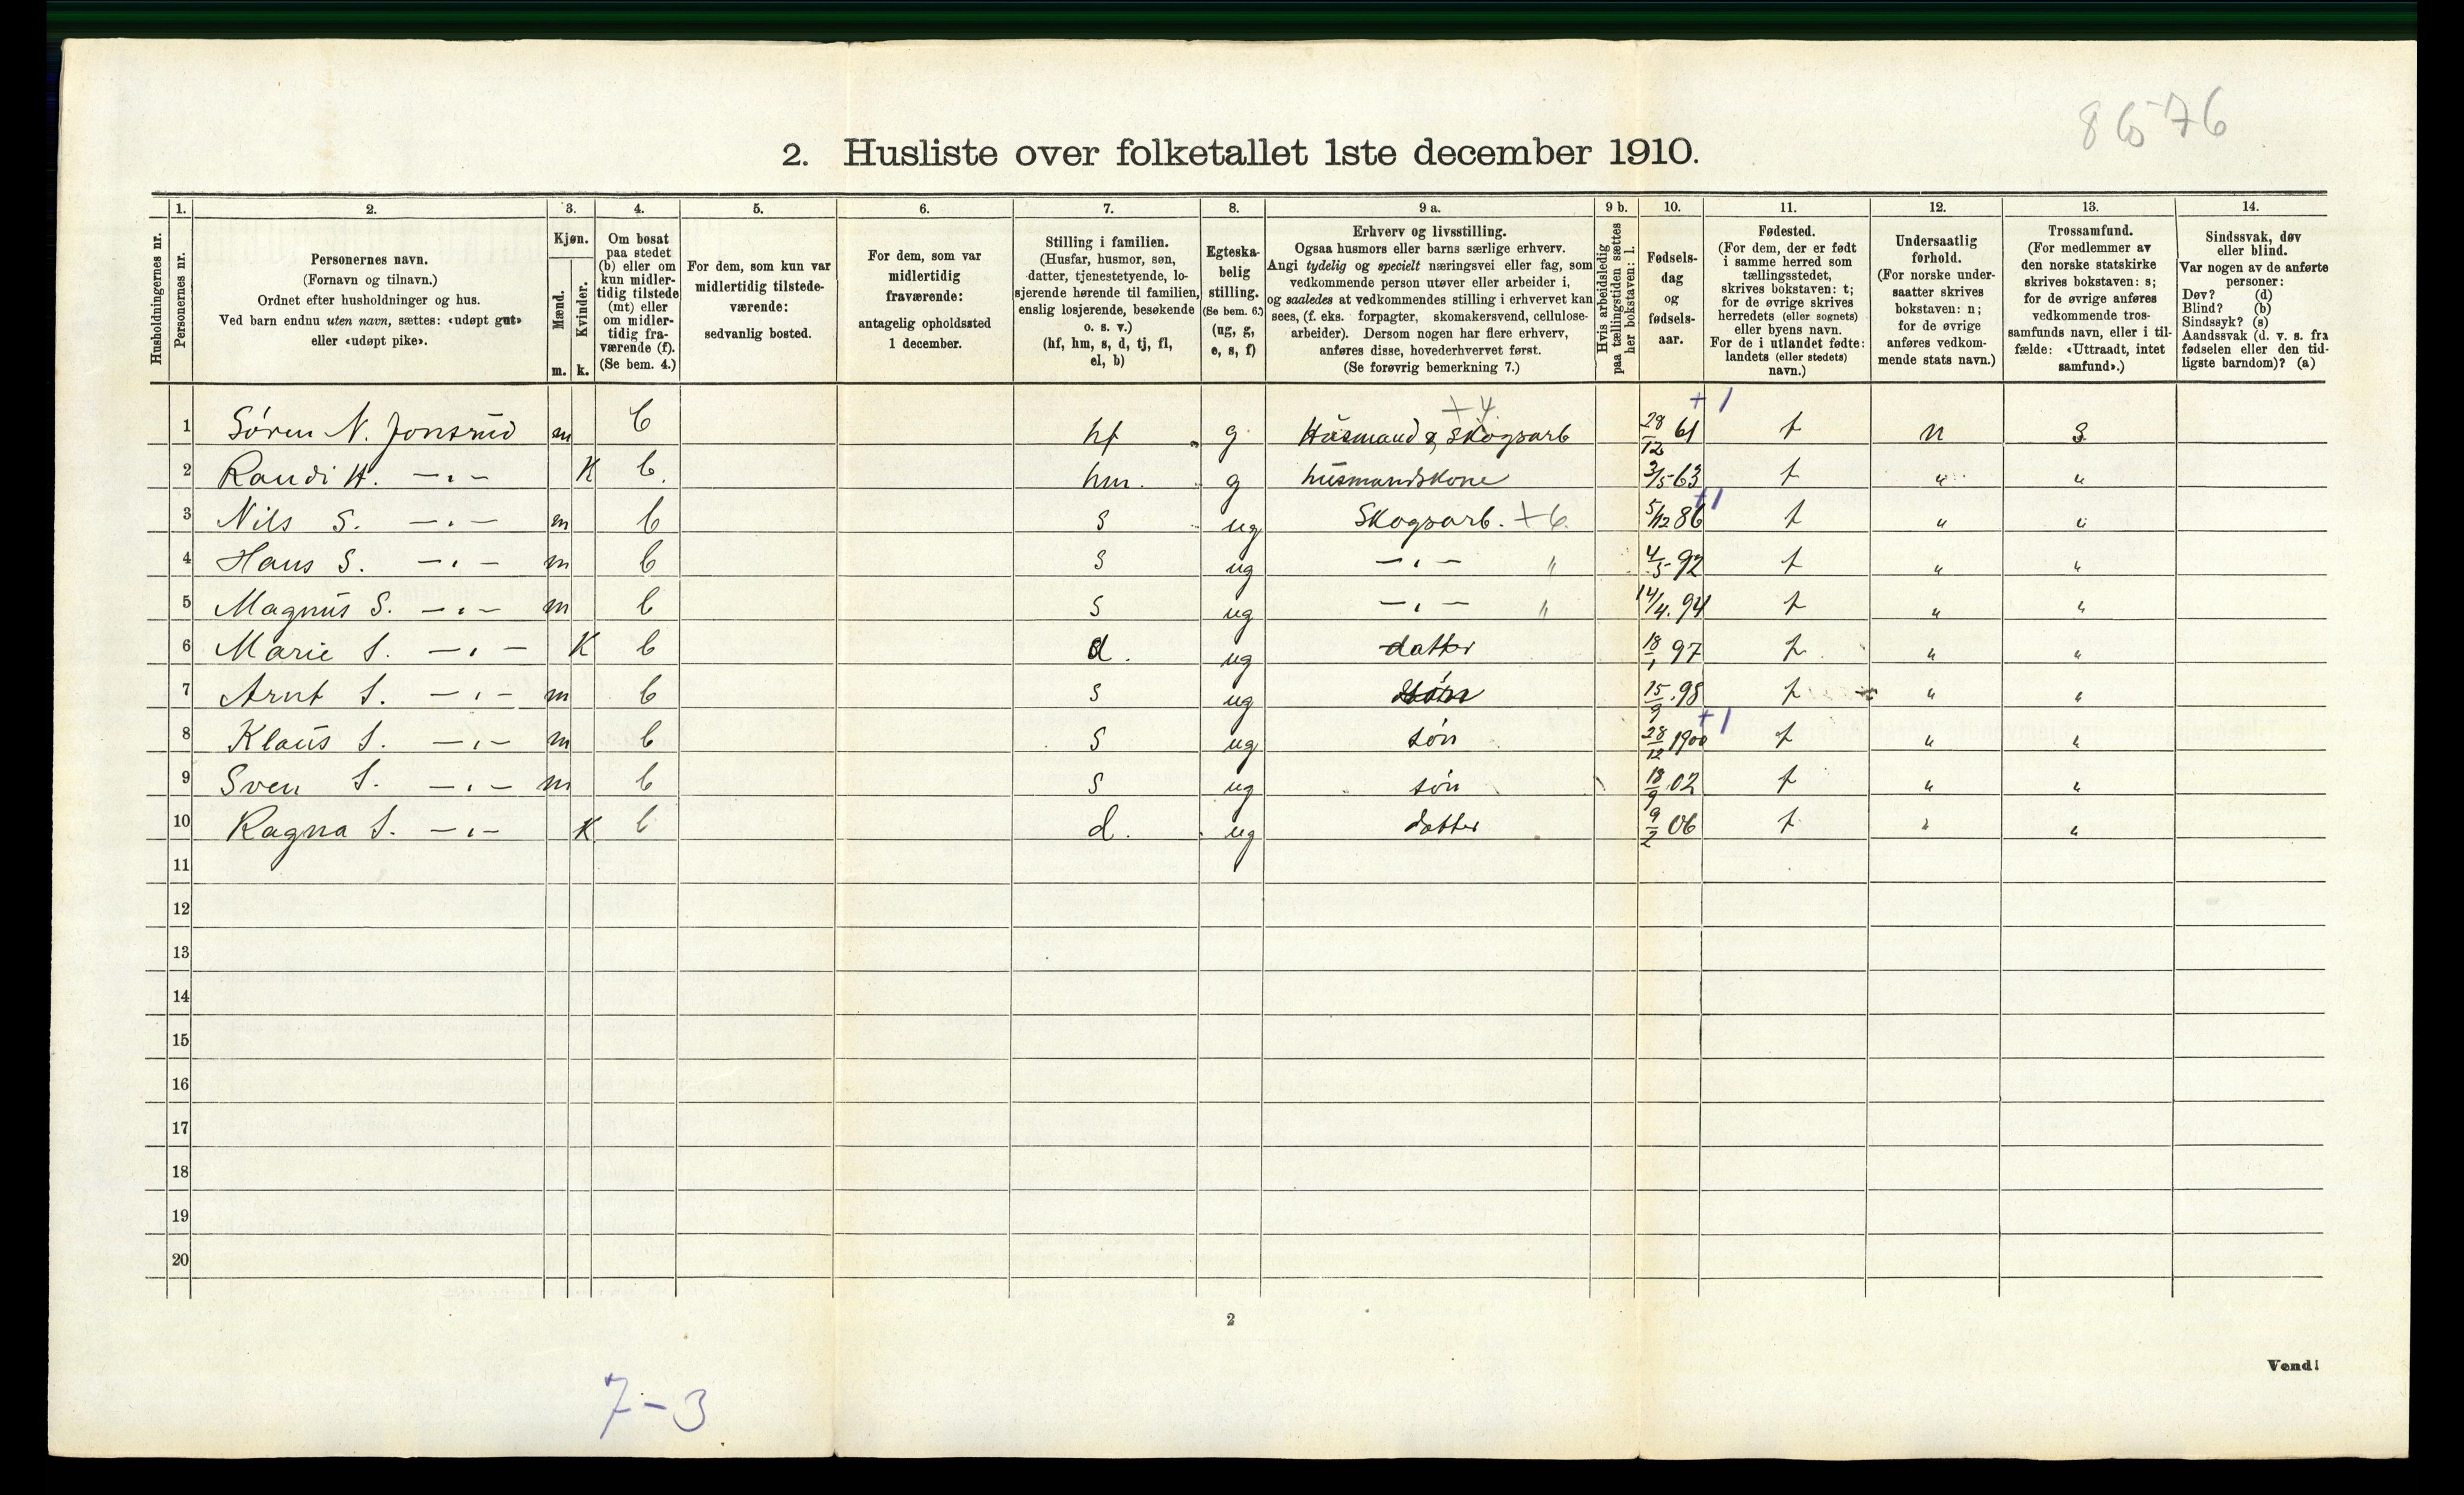 8676
2. Husliste over folketallet 1ste december 1910.
Husholdningernes nr.
1. Personernes nr.
2. Personernes navn.
(Fornavn og tilnavn.)
Ordnet efter husholdninger og hus.
Ved barn endnu uten navn, sættes: «udøpt gut»
eller «udøpt pike».
3. Kjøn.
Mænd. m.
Kvinder. k.
4. Om bosat
paa stedet
(b) eller om
kun midler-
tidig tilstede
(mt) eller
om midler-
tidig fra-
værende (f).
(Se bem. 4.)
5. For dem, som kun var
midlertidig tilstede-
værende:
sedvanlig bosted.
6. For dem, som var
midlertidig
fraværende:
antagelig opholdssted
1 december.
7. Stilling i familien.
(Husfar, husmor, søn,
datter, tjenestetyende, lo-
sjerende hørende til familien,
enslig losjerende, besøkende
o. s. v.)
(hf, hm, s, d, tj, fl,
el, b)
8. Egteska-
belig
stilling.
(Se bem. 6.)
(ug, g,
e, s, f)
9 a. Erhverv og livsstilling.
Ogsaa husmors eller barns særlige erhverv.
Angi tydelig og specielt næringsvei eller fag, som
vedkommende person utøver eller arbeider i,
og saaledes at vedkommendes stilling i erhvervet kan
sees, (f. eks. forpagter, skomakersvend, cellulose-
arbeider). Dersom nogen har flere erhverv,
anføres disse, hovederhvervet først.
(Se forøvrig bemerkning 7.)
9 b. Hvis arbeidsledig
paa tællingstiden sættes
her bokstaven: l.
10. Fødsels-
dag
og
fødsels-
aar.
11. Fødested.
(For dem, der er født
i samme herred som
tællingsstedet,
skrives bokstaven: t;
for de øvrige skrives
herredets (eller sognets)
eller byens navn.
For de i utlandet fødte:
landets (eller stedets)
navn.)
12. Undersaatlig
forhold.
(For norske under-
saatter skrives
bokstaven: n;
for de øvrige
anføres vedkom-
mende stats navn.)
13. Trossamfund.
(For medlemmer av
den norske statskirke
skrives bokstaven: s;
for de øvrige anføres
vedkommende tros-
samfunds navn, eller i til-
fælde: «Uttraadt, intet
samfund».)
14. Sindssvak, døv
eller blind.
Var nogen av de anførte
personer:
Døv? (d)
Blind? (b)
Sindssyk? (s)
Aandssvak (d. v. s. fra
fødselen eller den tid-
ligste barndom)? (a)
+4 +1
1 Søren N. Jonsrud m b hf g Husmand & Skogsarb 28/12 61 t n s
2 Randi H. —„— K b. hm. g husmandskone 3/5 63 t „ „
3 Nils S. —„— m b s ug Skogsarb. +6. 5/12 86 +1 t „ „
4 Hans S. —„— m b s ug —„— „ 4/5 92 t „ „
5 Magnus S. —„— m b s ug —„— „ 14/4. 94 t „ „
6 Marie S. —„— K b d. ug datter 18/1 97 t „ „
7 Arnt S. —„— m b s ug søn 15/9 98 t „ „
8 Klaus S. —„— m b s ug søn 28/12 1900 +1 t „ „
9 Sven S. —„— m b s ug søn 18/9 02 t „ „
10 Ragna S. —„— K b d. ug datter 9/2 06 t „ „
11
12
13
14
15
16
17
18
19
20
2
Vend!
7-3